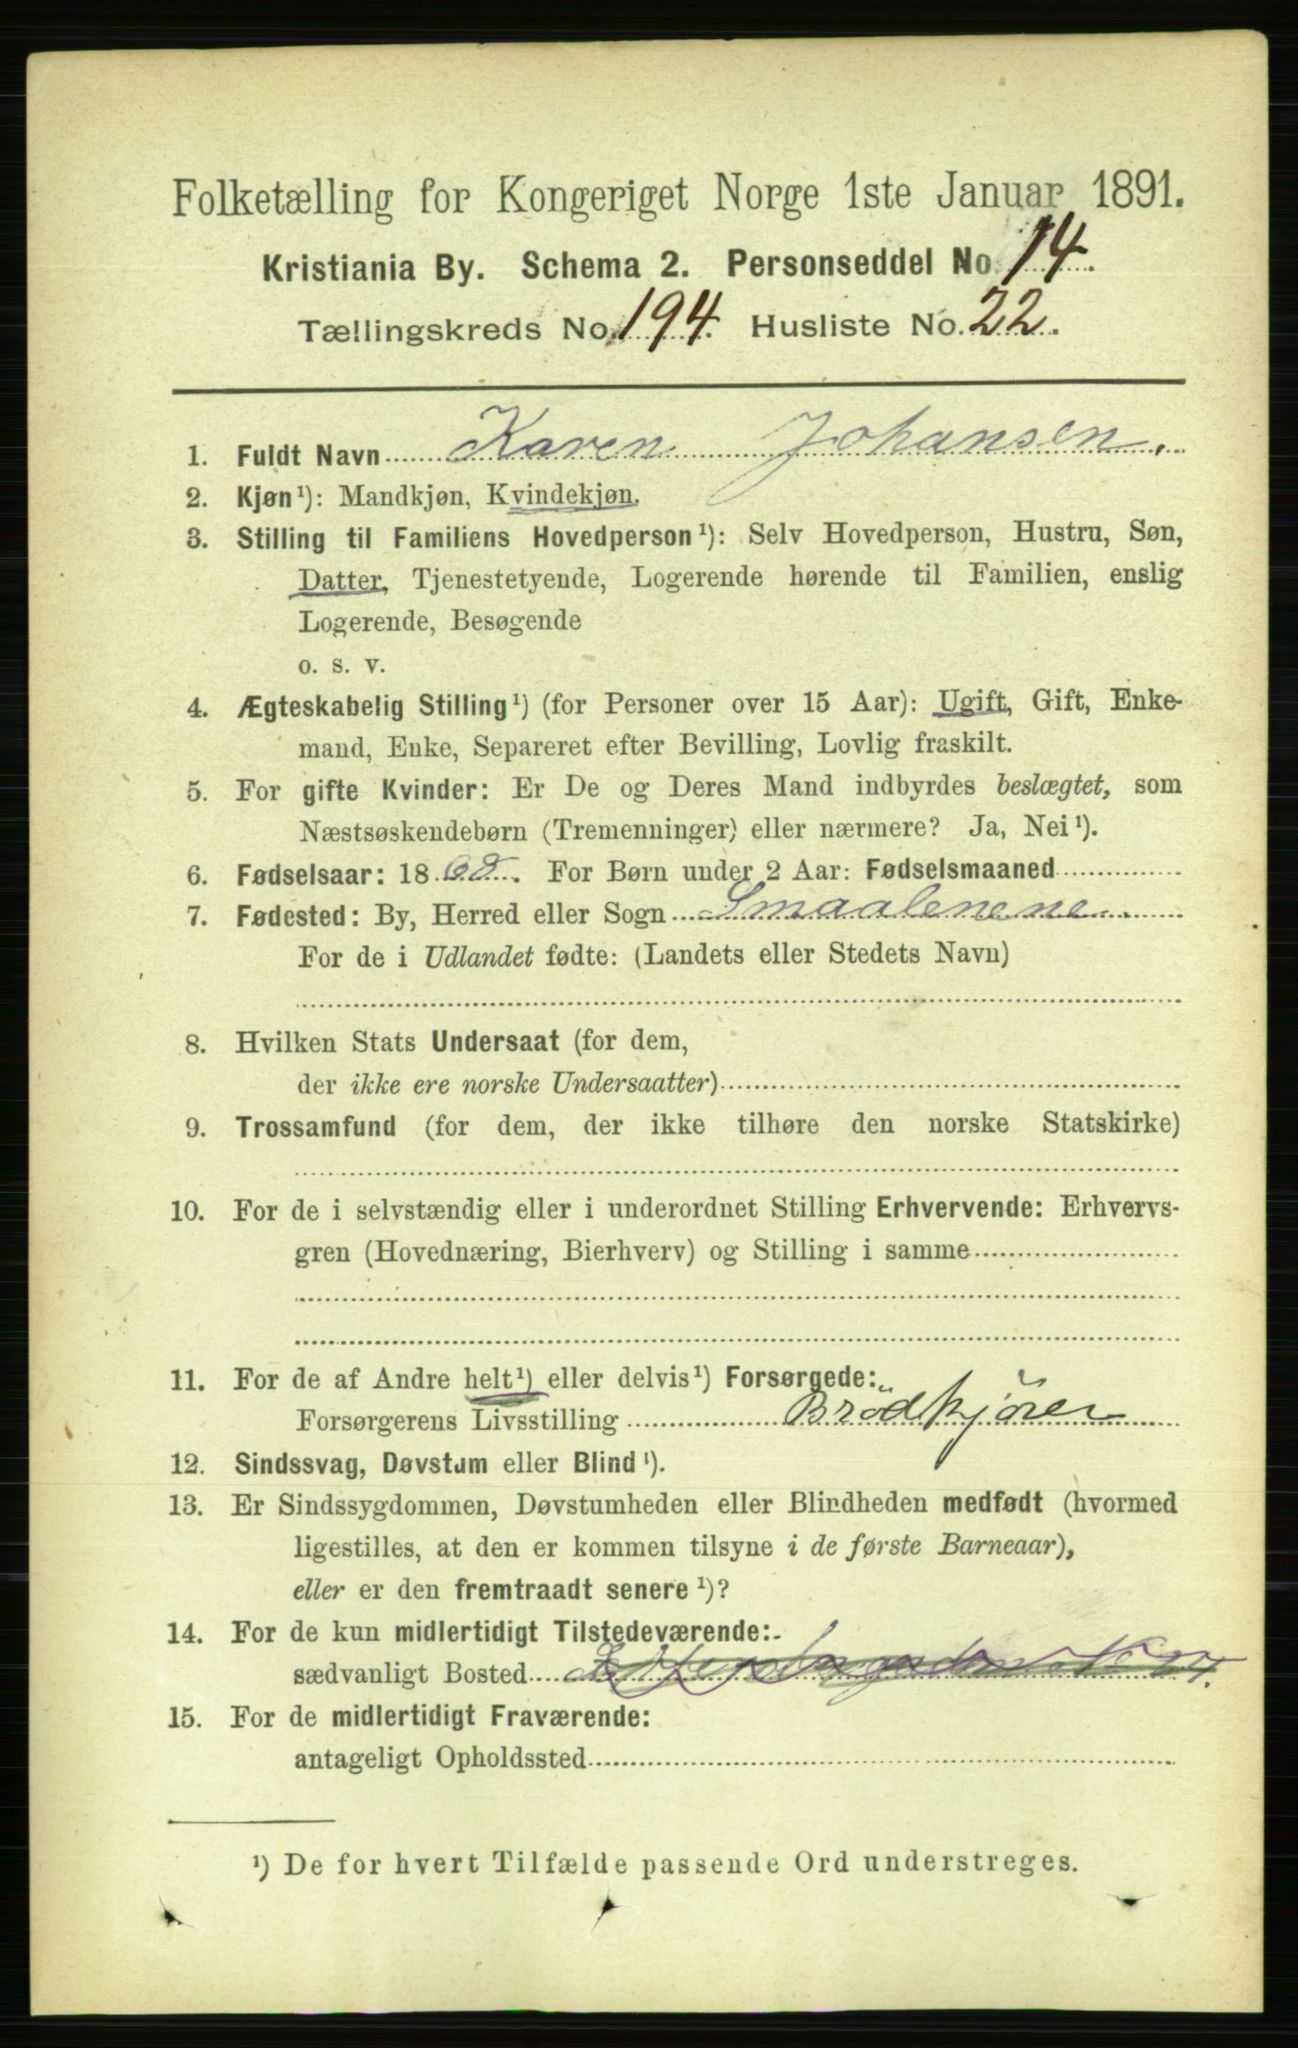 Folketælling for Kongeriget Norge 1ste Januar 1891.
Kristiania By. Schema 2. Personseddel No. 14.
Tællingskreds No. 194. Husliste No. 22.
1. Fuldt Navn Karen Johansen.
2. Kjøn¹): Mandkjøn, Kvindekjøn.
3. Stilling til Familiens Hovedperson¹): Selv Hovedperson, Hustru, Søn,
Datter, Tjenestetyende, Logerende hørende til Familien, enslig
Logerende, Besøgende
o. s. v.
4. Ægteskabelig Stilling¹) (for Personer over 15 Aar): Ugift, Gift, Enke-
mand, Enke, Separeret efter Bevilling, Lovlig fraskilt.
5. For gifte Kvinder: Er De og Deres Mand indbyrdes beslægtet, som
Næstsøskendebørn (Tremenninger) eller nærmere? Ja, Nei¹).
6. Fødselsaar: 1868. For Børn under 2 Aar: Fødselsmaaned
7. Fødested: By, Herred eller Sogn Smaalenene
For de i Udlandet fødte: (Landets eller Stedets Navn)
8. Hvilken Stats Undersaat (for dem,
der ikke ere norske Undersaatter)
9. Trossamfund (for dem, der ikke tilhøre den norske Statskirke)
10. For de i selvstændig eller i underordnet Stilling Erhvervende: Erhvervs-
gren (Hovednæring, Bierhverv) og Stilling i samme
11. For de af Andre helt¹) eller delvis¹) Forsørgede:
Forsørgerens Livsstilling Brödkjörer
12. Sindssvag, Døvstum eller Blind¹).
13. Er Sindssygdommen, Døvstumheden eller Blindheden medfødt (hvormed
ligestilles, at den er kommen tilsyne i de første Barneaar),
eller er den fremtraadt senere¹)?
14. For de kun midlertidigt Tilstedeværende:
sædvanligt Bosted
15. For de midlertidigt Fraværende:
antageligt Opholdssted
¹) De for hvert Tilfælde passende Ord understreges.